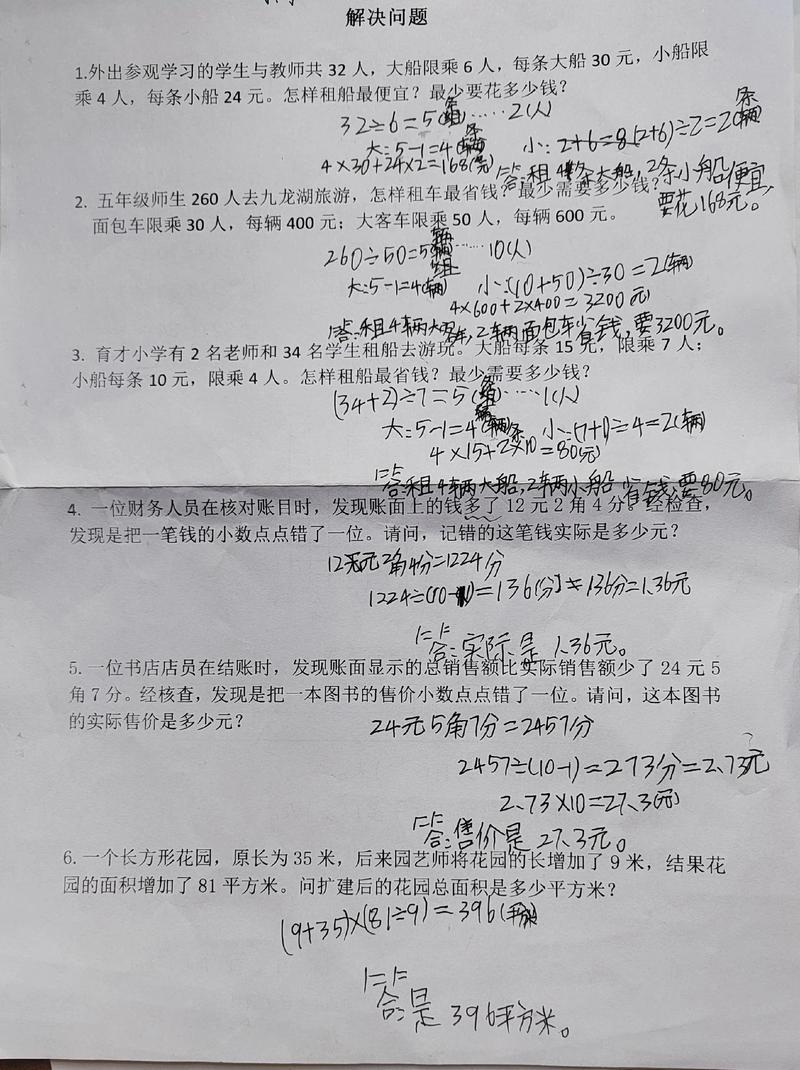 解决问题
1.外出参观学习的学生与教师共 32 人，大船限乘 6 人，每条大船 30 元，小船限
乘 4 人，每条小船 24 元。怎样租船最便宜？最少要花多少钱？
32÷6=5(组)……2(人)
大:5-1=4(条) 小:2+6=8(2+6)÷2=20(条)
4×30+24×2=168(元) 答:租4条大船,2条小船便宜,
要花168元。
2. 五年级师生 260 人去九龙湖旅游，怎样租车最省钱？最少需要多少钱？
面包车限乘 30 人，每辆 400 元；大客车限乘 50 人，每辆 600 元。
260÷50=5(辆)……10(人)
大:5-1=4(辆) 小:(10+50)÷30=2(辆)
4×600+2×400=3200(元)
答:租4辆大客车,2辆面包车省钱,要3200元。
3. 育才小学有 2 名老师和 34 名学生租船去游玩。大船每条 15 元，限乘 7 人；
小船每条 10 元，限乘 4 人。怎样租船最省钱？最少需要多少钱？
(34+2)÷7=5(条)……1(人)
大:5-1=4(条) 小:(7+1)÷4=2(辆)
4×15+2×10=80(元)
答:租4辆大船,2辆小船省钱,要80元。
4. 一位财务人员在核对账目时，发现账面上的钱多了 12 元 2 角 4 分。经检查，
发现是把一笔钱的小数点点错了一位。请问，记错的这笔钱实际是多少元？
12元2角4分=1224分
1224÷(10-1)=136(分) 136分=1.36元
答:实际是1.36元。
5. 一位书店店员在结账时，发现账面显示的总销售额比实际销售额少了 24 元 5
角 7 分。经核查，发现是把一本图书的售价小数点点错了一位。请问，这本图书
的实际售价是多少元？
24元5角7分=2457分
2457÷(10-1)=273分=2.73元
2.73×10=27.3(元)
答:售价是27.3元。
6. 一个长方形花园，原长为 35 米，后来园艺师将花园的长增加了 9 米，结果花
园的面积增加了 81 平方米。问扩建后的花园总面积是多少平方米？
(9+35)×(81÷9)=396(平方米)
答:是396平方米。